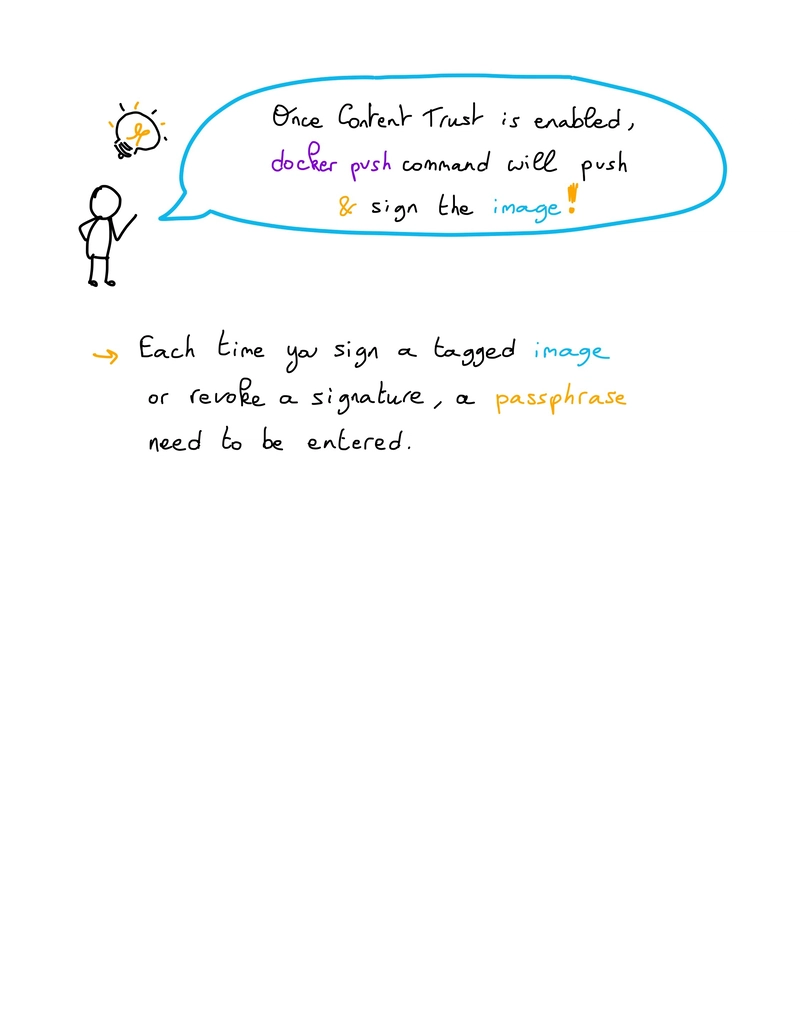 Once Content Trust is enabled,
docker push command will push
& sign the image!
→ Each time you sign a tagged image
or revoke a signature, a passphrase
need to be entered.